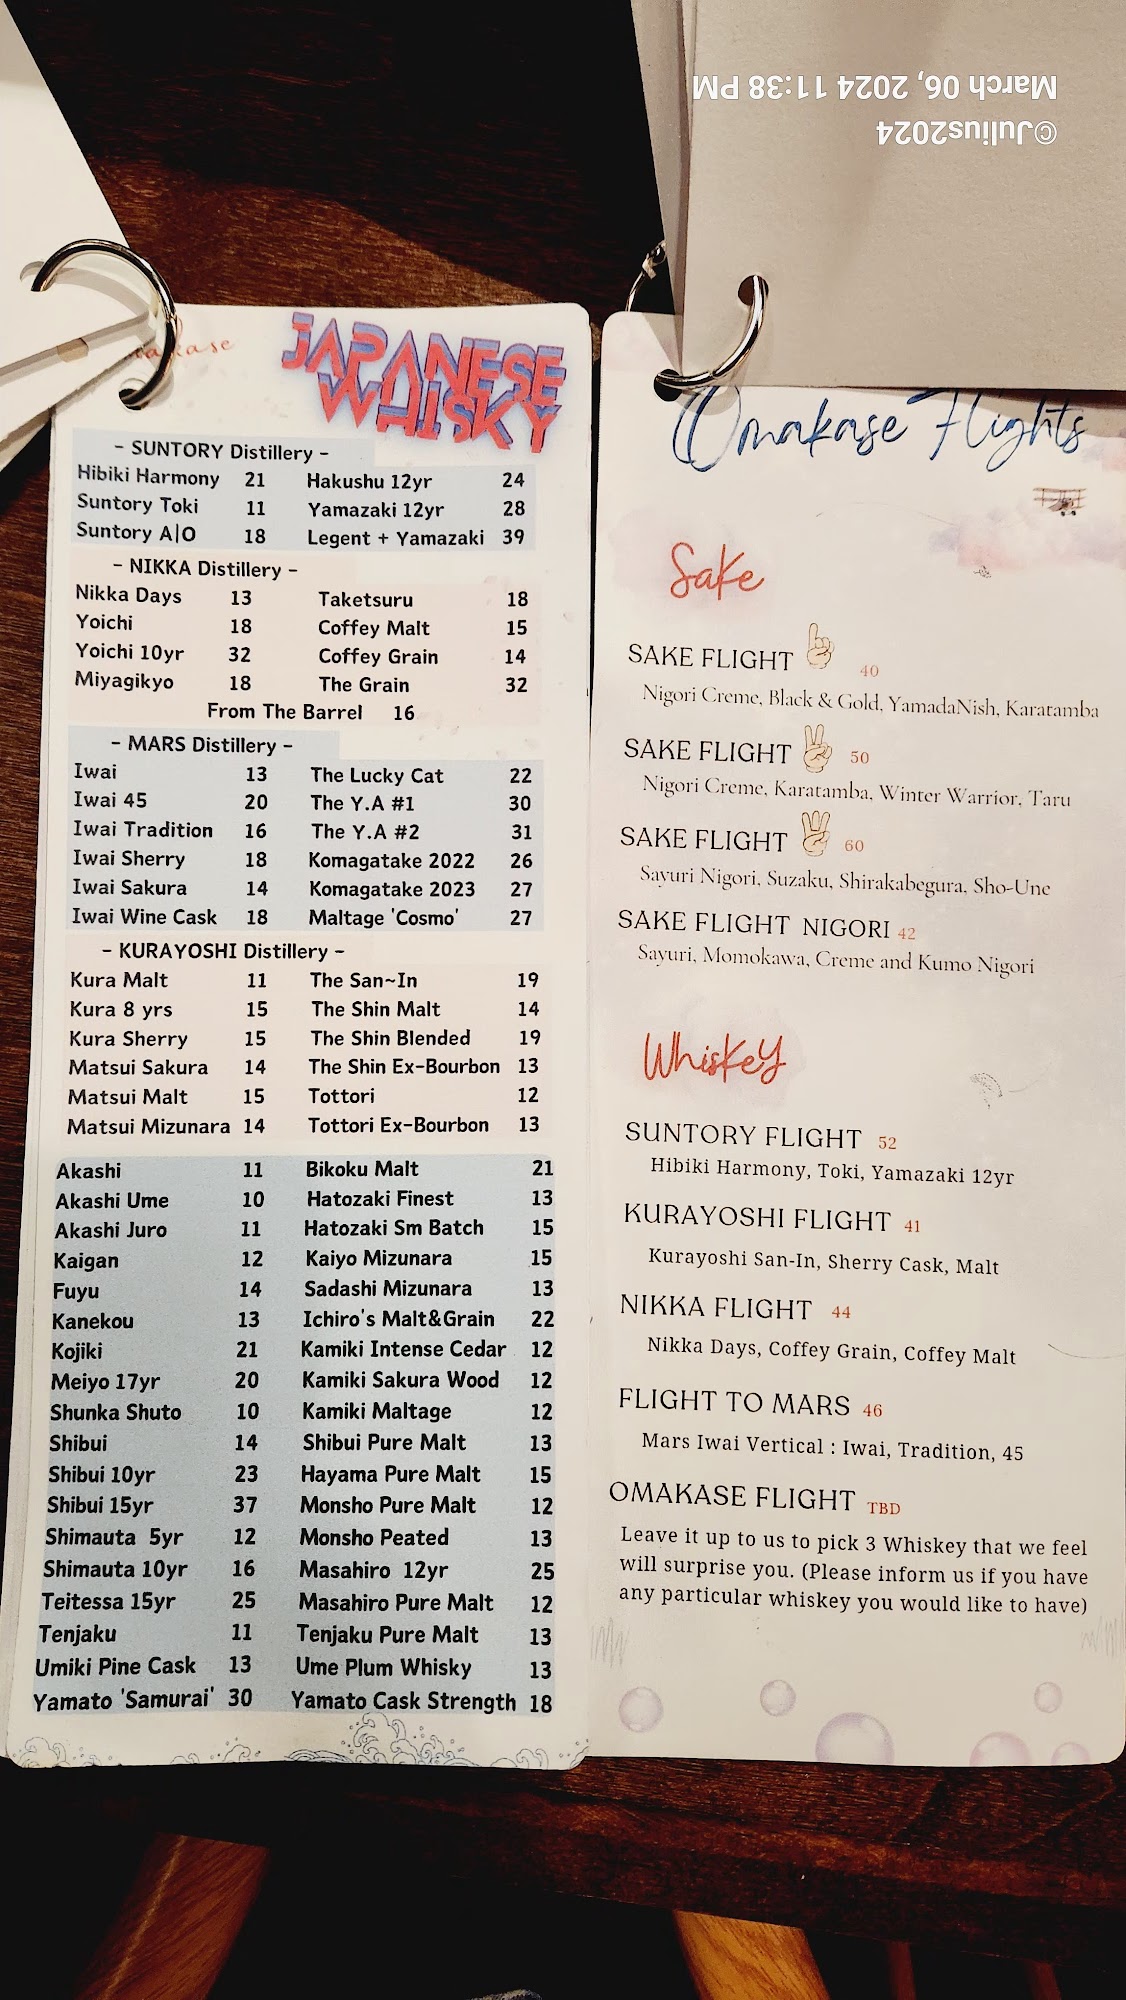 March 06, 2024 11:38 PM
©Julius2024
JAPANESE
WHISKY
- SUNTORY Distillery -
Hibiki Harmony 21 Hakushu 12yr 24
Suntory Toki 11 Yamazaki 12yr 28
Suntory A|O 18 Legent + Yamazaki 39
- NIKKA Distillery -
Nikka Days 13 Taketsuru 18
Yoichi 18 Coffey Malt 15
Yoichi 10yr 32 Coffey Grain 14
Miyagikyo 18 The Grain 32
From The Barrel 16
- MARS Distillery -
Iwai 13 The Lucky Cat 22
Iwai 45 20 The Y.A #1 30
Iwai Tradition 16 The Y.A #2 31
Iwai Sherry 18 Komagatake 2022 26
Iwai Sakura 14 Komagatake 2023 27
Iwai Wine Cask 18 Maltage 'Cosmo' 27
- KURAYOSHI Distillery -
Kura Malt 11 The San~In 19
Kura 8 yrs 15 The Shin Malt 14
Kura Sherry 15 The Shin Blended 19
Matsui Sakura 14 The Shin Ex-Bourbon 13
Matsui Malt 15 Tottori 12
Matsui Mizunara 14 Tottori Ex-Bourbon 13
Akashi 11 Bikoku Malt 21
Akashi Ume 10 Hatozaki Finest 13
Akashi Juro 11 Hatozaki Sm Batch 15
Kaigan 12 Kaiyo Mizunara 15
Fuyu 14 Sadashi Mizunara 13
Kanekou 13 Ichiro's Malt&Grain 22
Kojiki 21 Kamiki Intense Cedar 12
Meiyo 17yr 20 Kamiki Sakura Wood 12
Shunka Shuto 10 Kamiki Maltage 12
Shibui 14 Shibui Pure Malt 13
Shibui 10yr 23 Hayama Pure Malt 15
Shibui 15yr 37 Monsho Pure Malt 12
Shimauta 5yr 12 Monsho Peated 13
Shimauta 10yr 16 Masahiro 12yr 25
Teitessa 15yr 25 Masahiro Pure Malt 12
Tenjaku 11 Tenjaku Pure Malt 13
Umiki Pine Cask 13 Ume Plum Whisky 13
Yamato 'Samurai' 30 Yamato Cask Strength 18
Omakase Flights
Sake
SAKE FLIGHT 40
Nigori Creme, Black & Gold, YamadaNish, Karatamba
SAKE FLIGHT 50
Nigori Creme, Karatamba, Winter Warrior, Taru
SAKE FLIGHT 60
Sayuri Nigori, Suzaku, Shirakabegura, Sho-Une
SAKE FLIGHT NIGORI 42
Sayuri, Momokawa, Creme and Kumo Nigori
Whiskey
SUNTORY FLIGHT 52
Hibiki Harmony, Toki, Yamazaki 12yr
KURAYOSHI FLIGHT 41
Kurayoshi San-In, Sherry Cask, Malt
NIKKA FLIGHT 44
Nikka Days, Coffey Grain, Coffey Malt
FLIGHT TO MARS 46
Mars Iwai Vertical : Iwai, Tradition, 45
OMAKASE FLIGHT TBD
Leave it up to us to pick 3 Whiskey that we feel
will surprise you. (Please inform us if you have
any particular whiskey you would like to have)